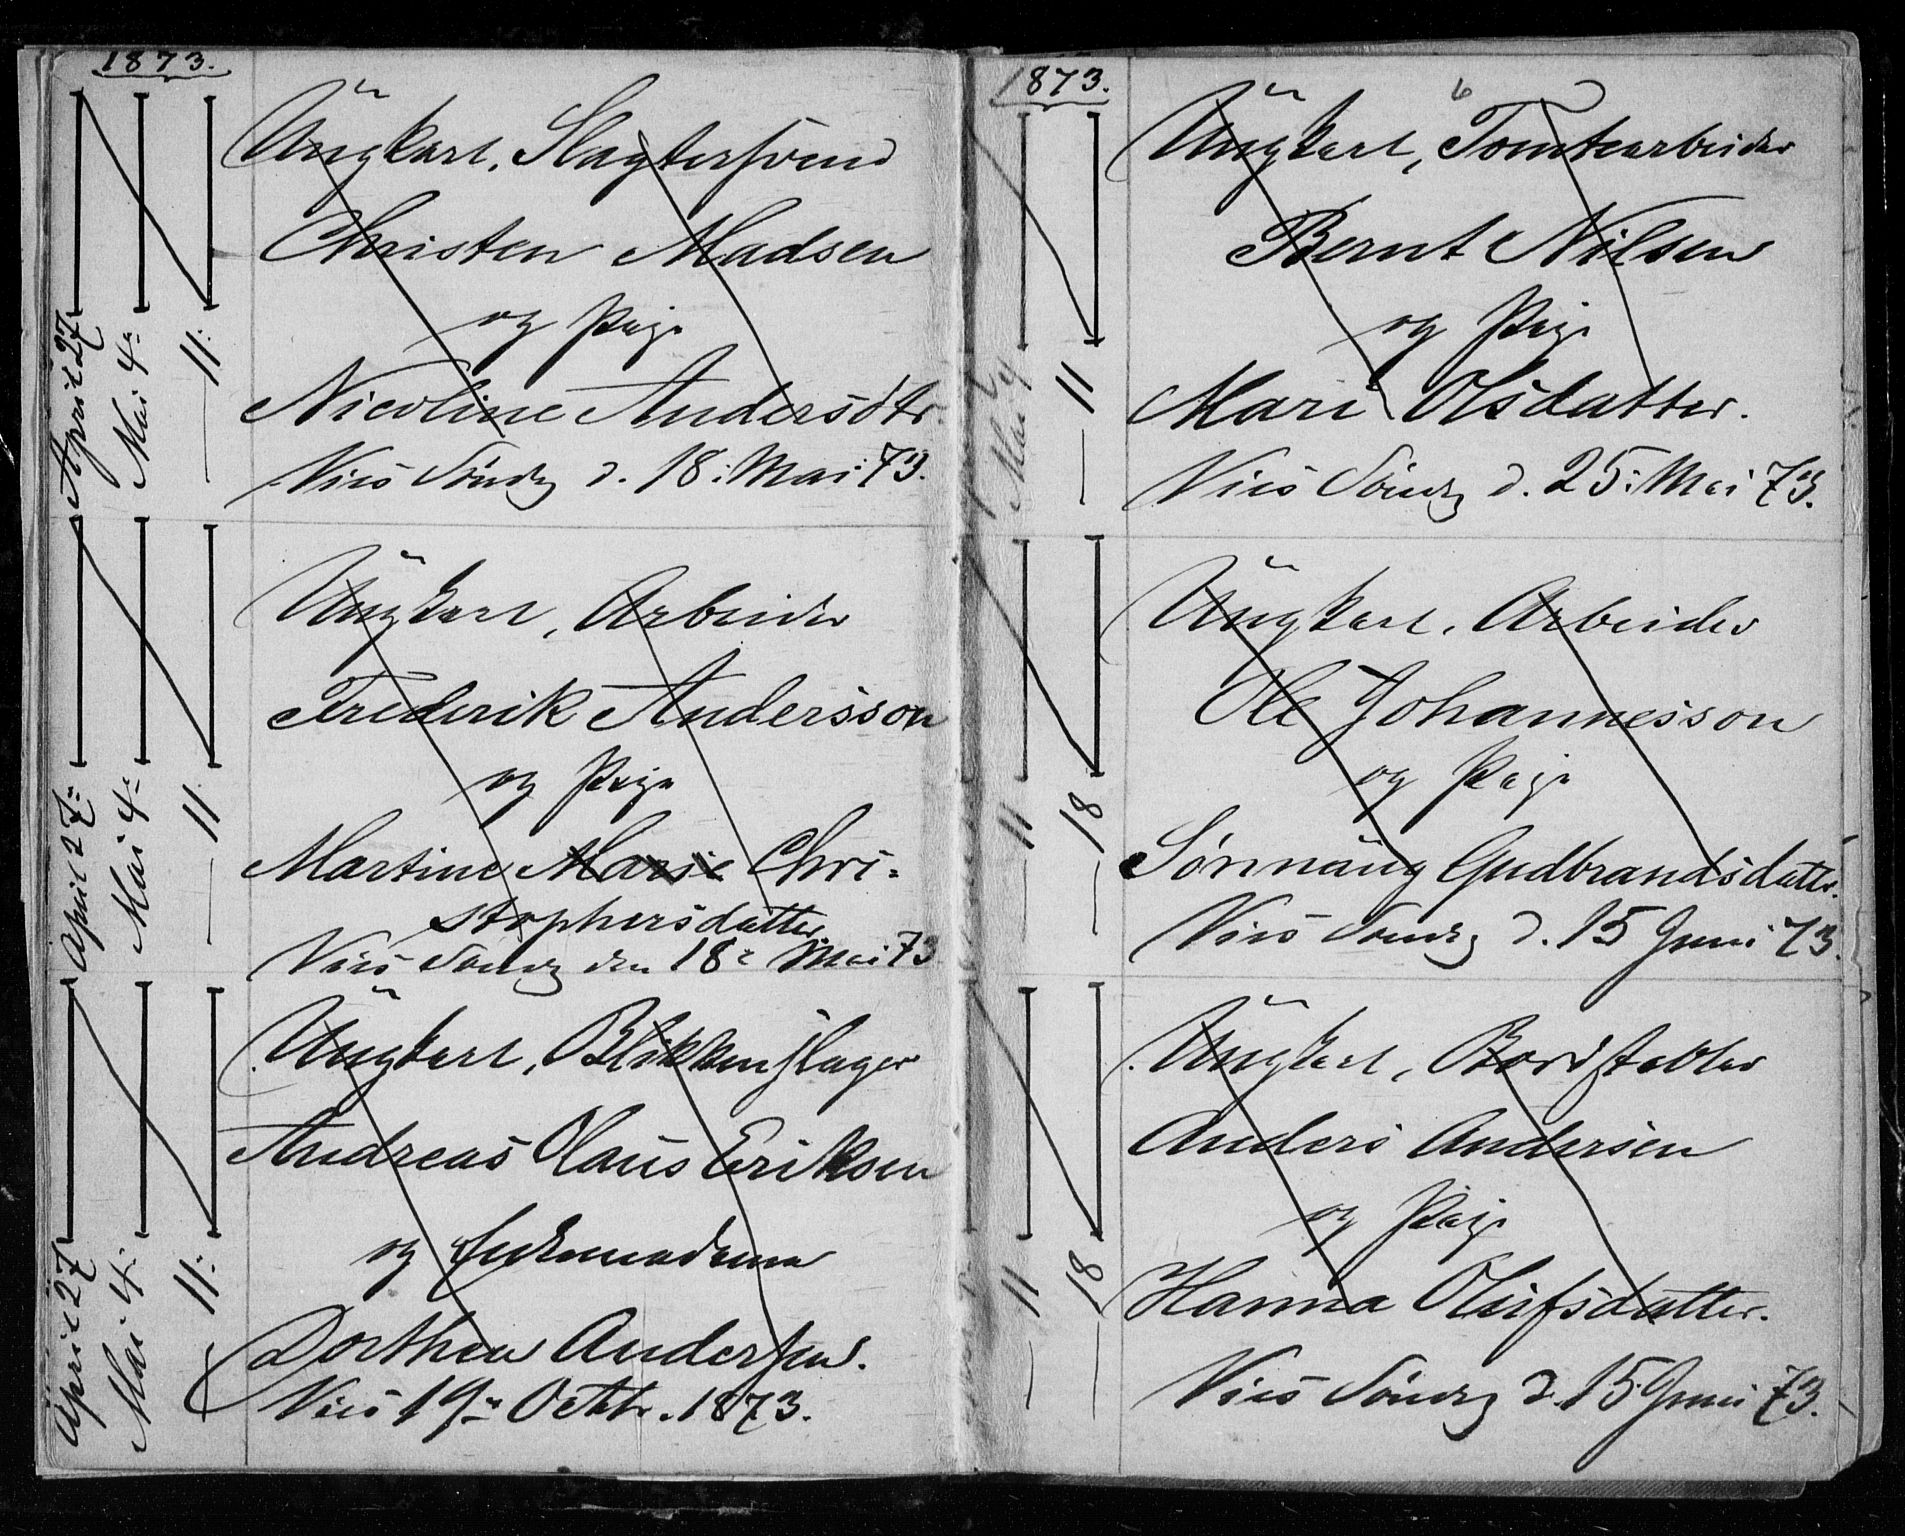 1873.
April 27
Mai 4.
11.
Ungkarl, Slagtersvend
Christen Madsen
og Pige
Nicoline Andersdtr.
Vies Søndg d. 18. Mai 73.
April 27.
Mai 4.
11
Ungkarl, Arbeider
Frederik Andersson
og Pige
Martine Marie Chri-
stophersdatter.
Vies Søndg den 18. Mai 73
April 27
Mai 4.
11.
Ungkarl, Blikkenslager
Andreas Olaus Eriksen
og
Dorthea Andersen.
Vies 19. Octbr. 1873.
1873.
6
Mai 4
11
Ungkarl, Tomtearbeider
Bernt Nilsen
og Pige
Mari Olsdatter.
Vies Søndg d. 25. Mai 73.
11
18
Ungkarl, Arbeider
Ole Johannesson
og Pige
Sønnaug Gudbrandsdatter.
Vies Søndg d. 15 Juni 73.
11
18
Ungkarl, Bordstabler
Anders Andersen
og Pige
Hanna Olufsdatter.
Vies Søndg d. 15 Juni 73.